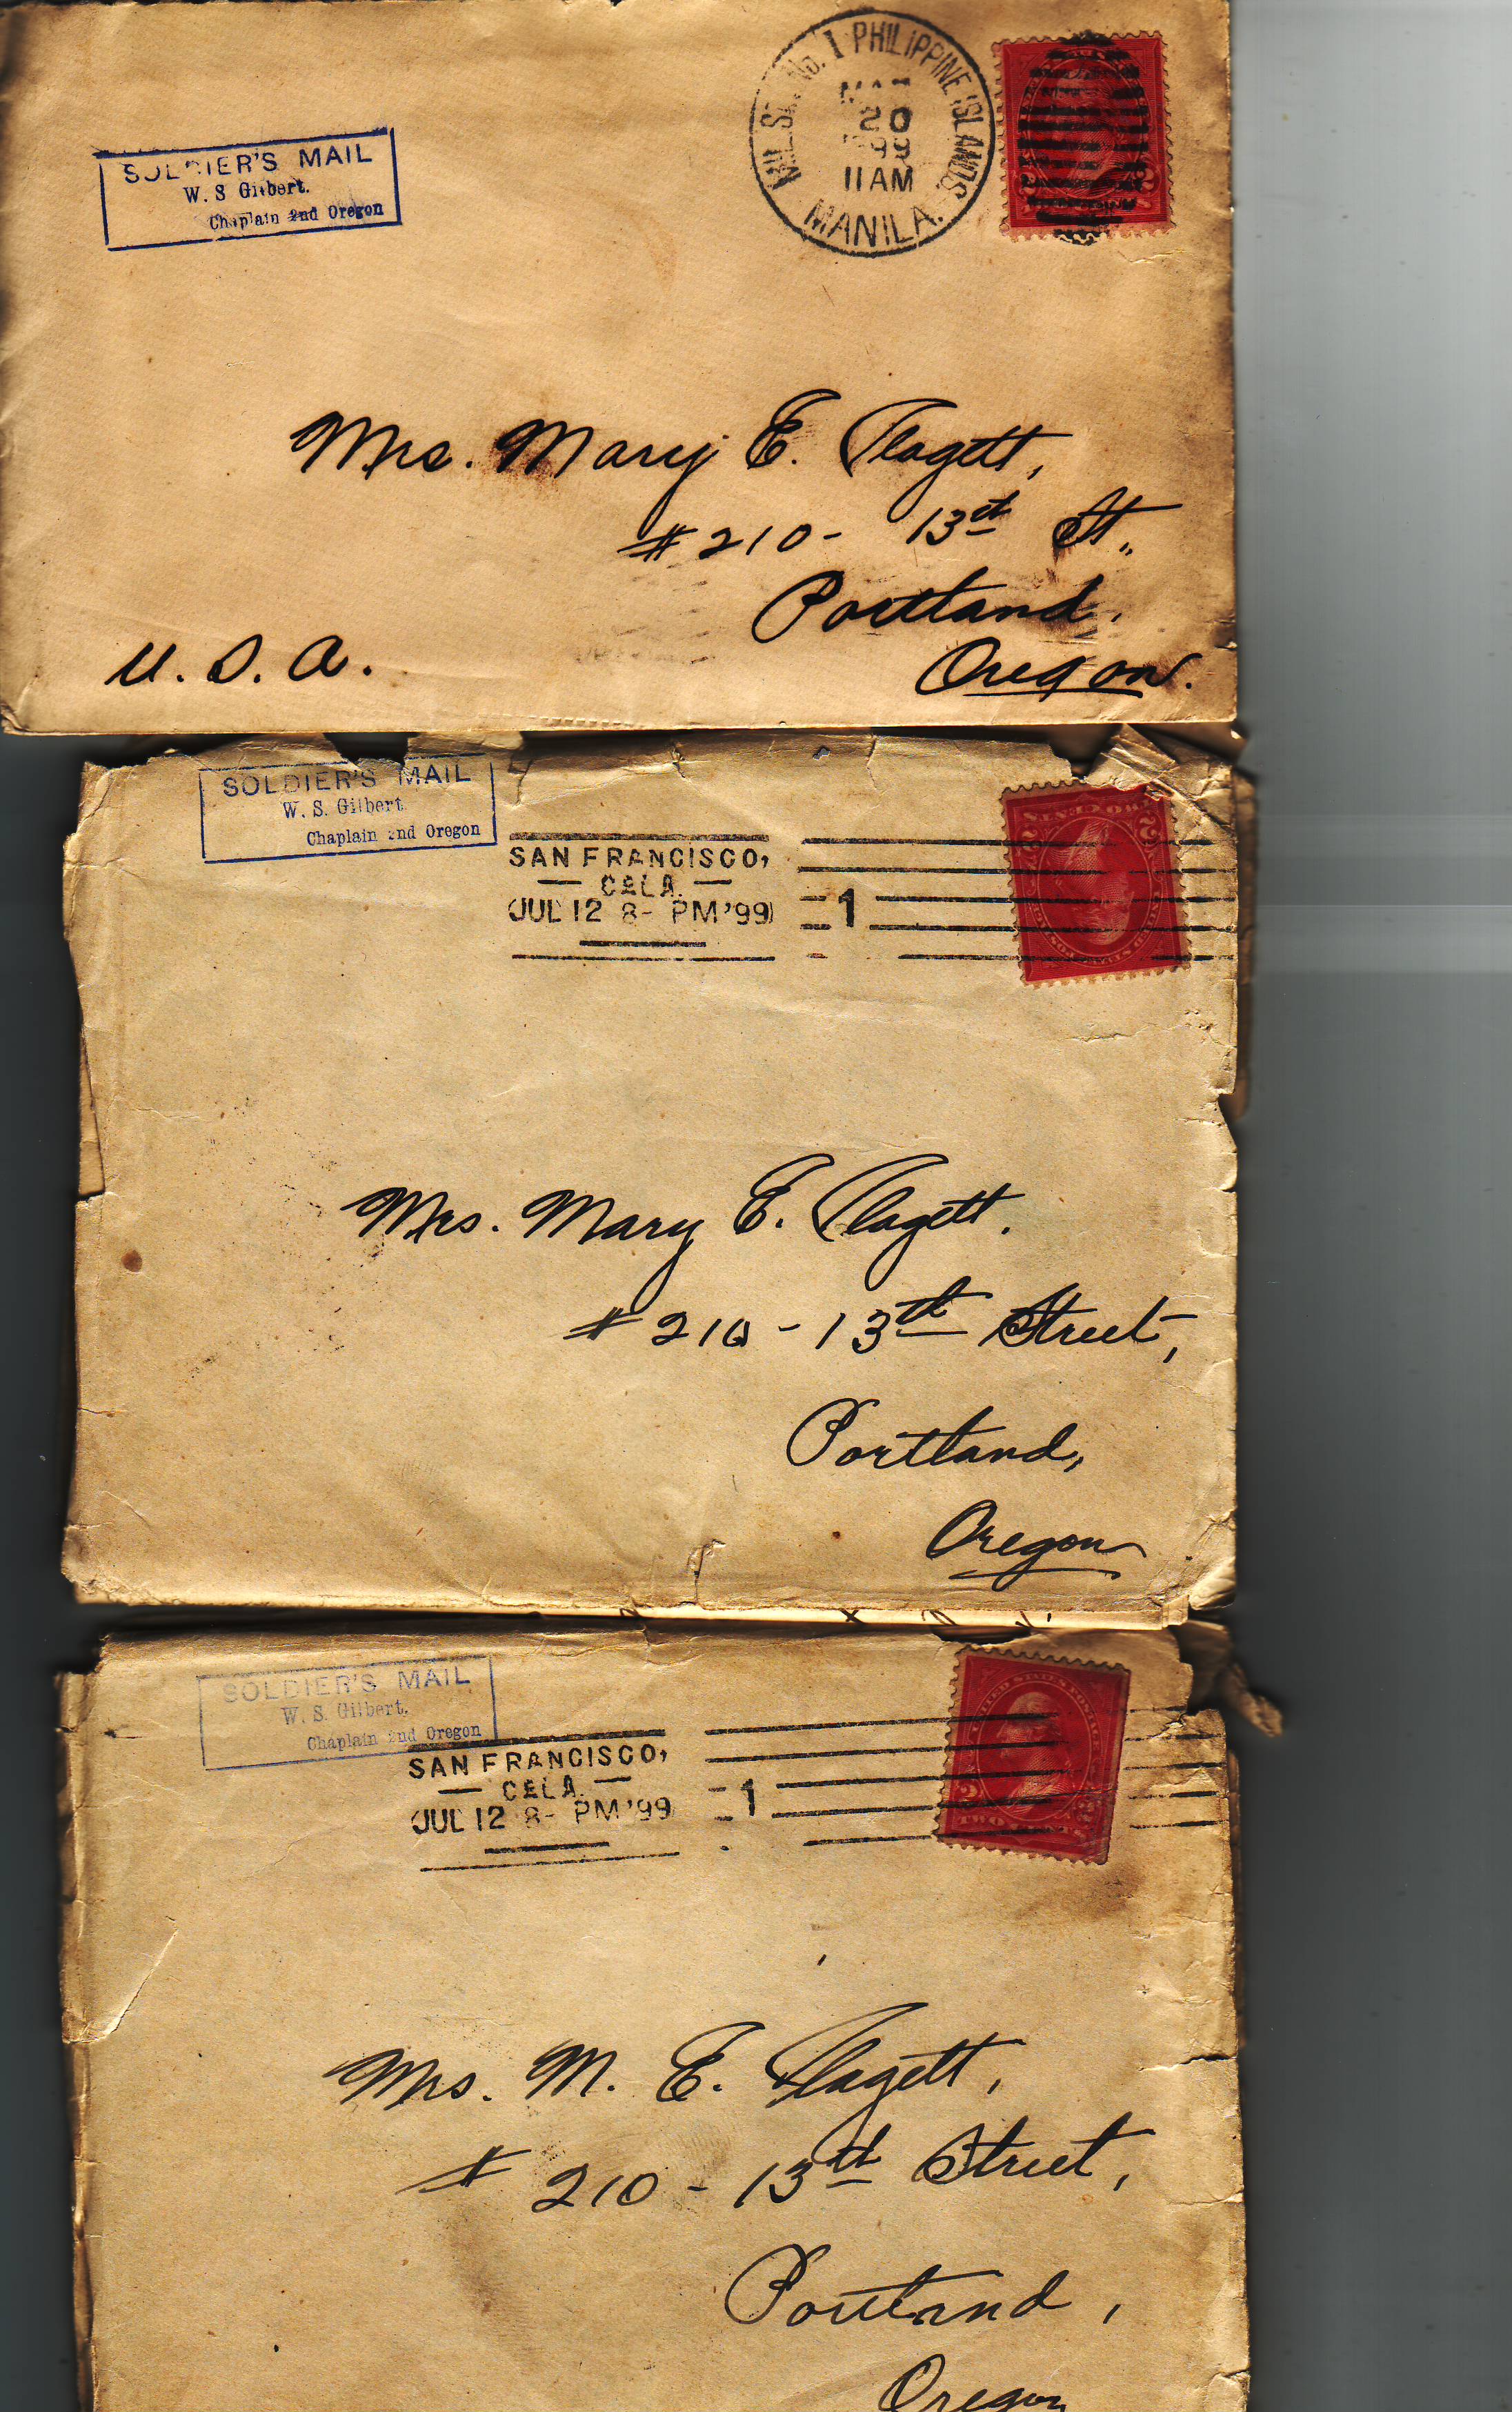 SOLDIER'S MAIL
W. S Gilbert.
Chaplain 2nd Oregon
MIL. STA. No. 1 PHILIPPINE ISLANDS.
20
'99
11 AM
MANILA.
Mrs. Mary E. Flagett,
#210 - 13th St.,
Portland.
U. S. A.
Oregon.
SOLDIER'S MAIL
W. S. Gilbert.
Chaplain 2nd Oregon
SAN FRANCISCO,
— CALA. —
JUL 12 8- PM '99
1
Mrs. Mary E. Flagett.
#210 - 13th Street,
Portland,
Oregon
SOLDIER'S MAIL
W. S. Gilbert,
Chaplain 2nd Oregon
SAN FRANCISCO,
— CALA. —
JUL 12 8- PM '99
1
TWO CENTS
Mrs. M. E. Flagett,
# 210 - 13th Street,
Portland,
Oregon